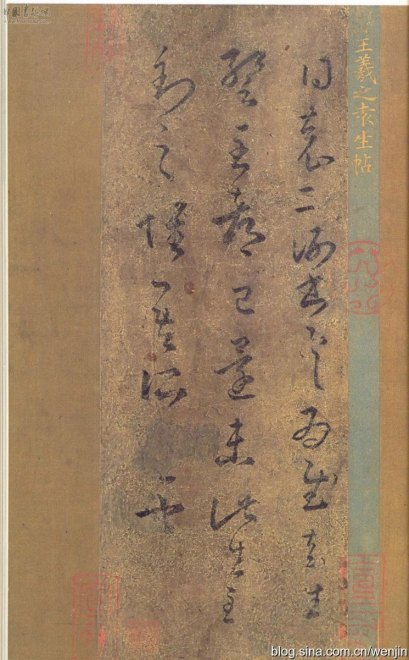 王羲之袁生帖
得袁二謝書具為慰袁生
暫至都已還未此生至
到之懷吾所盡也
blog.sina.com.cn/wenjin